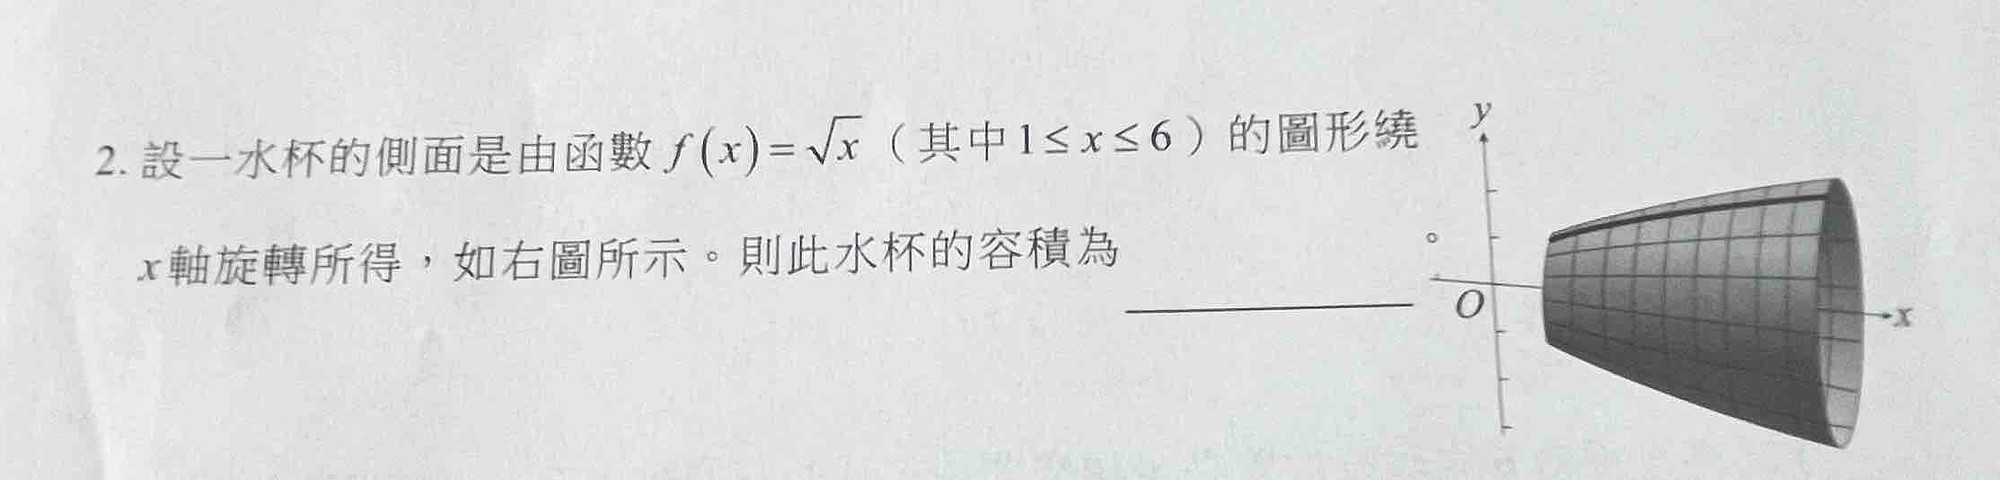 2. 設一水杯的側面是由函數 f(x)=√x（其中1≤x≤6）的圖形繞
x軸旋轉所得，如右圖所示。則此水杯的容積為________。
y
O
x